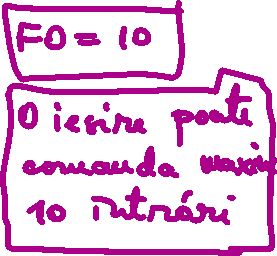 FO = 10
O iesire poate
comanda maxim
10 intrări